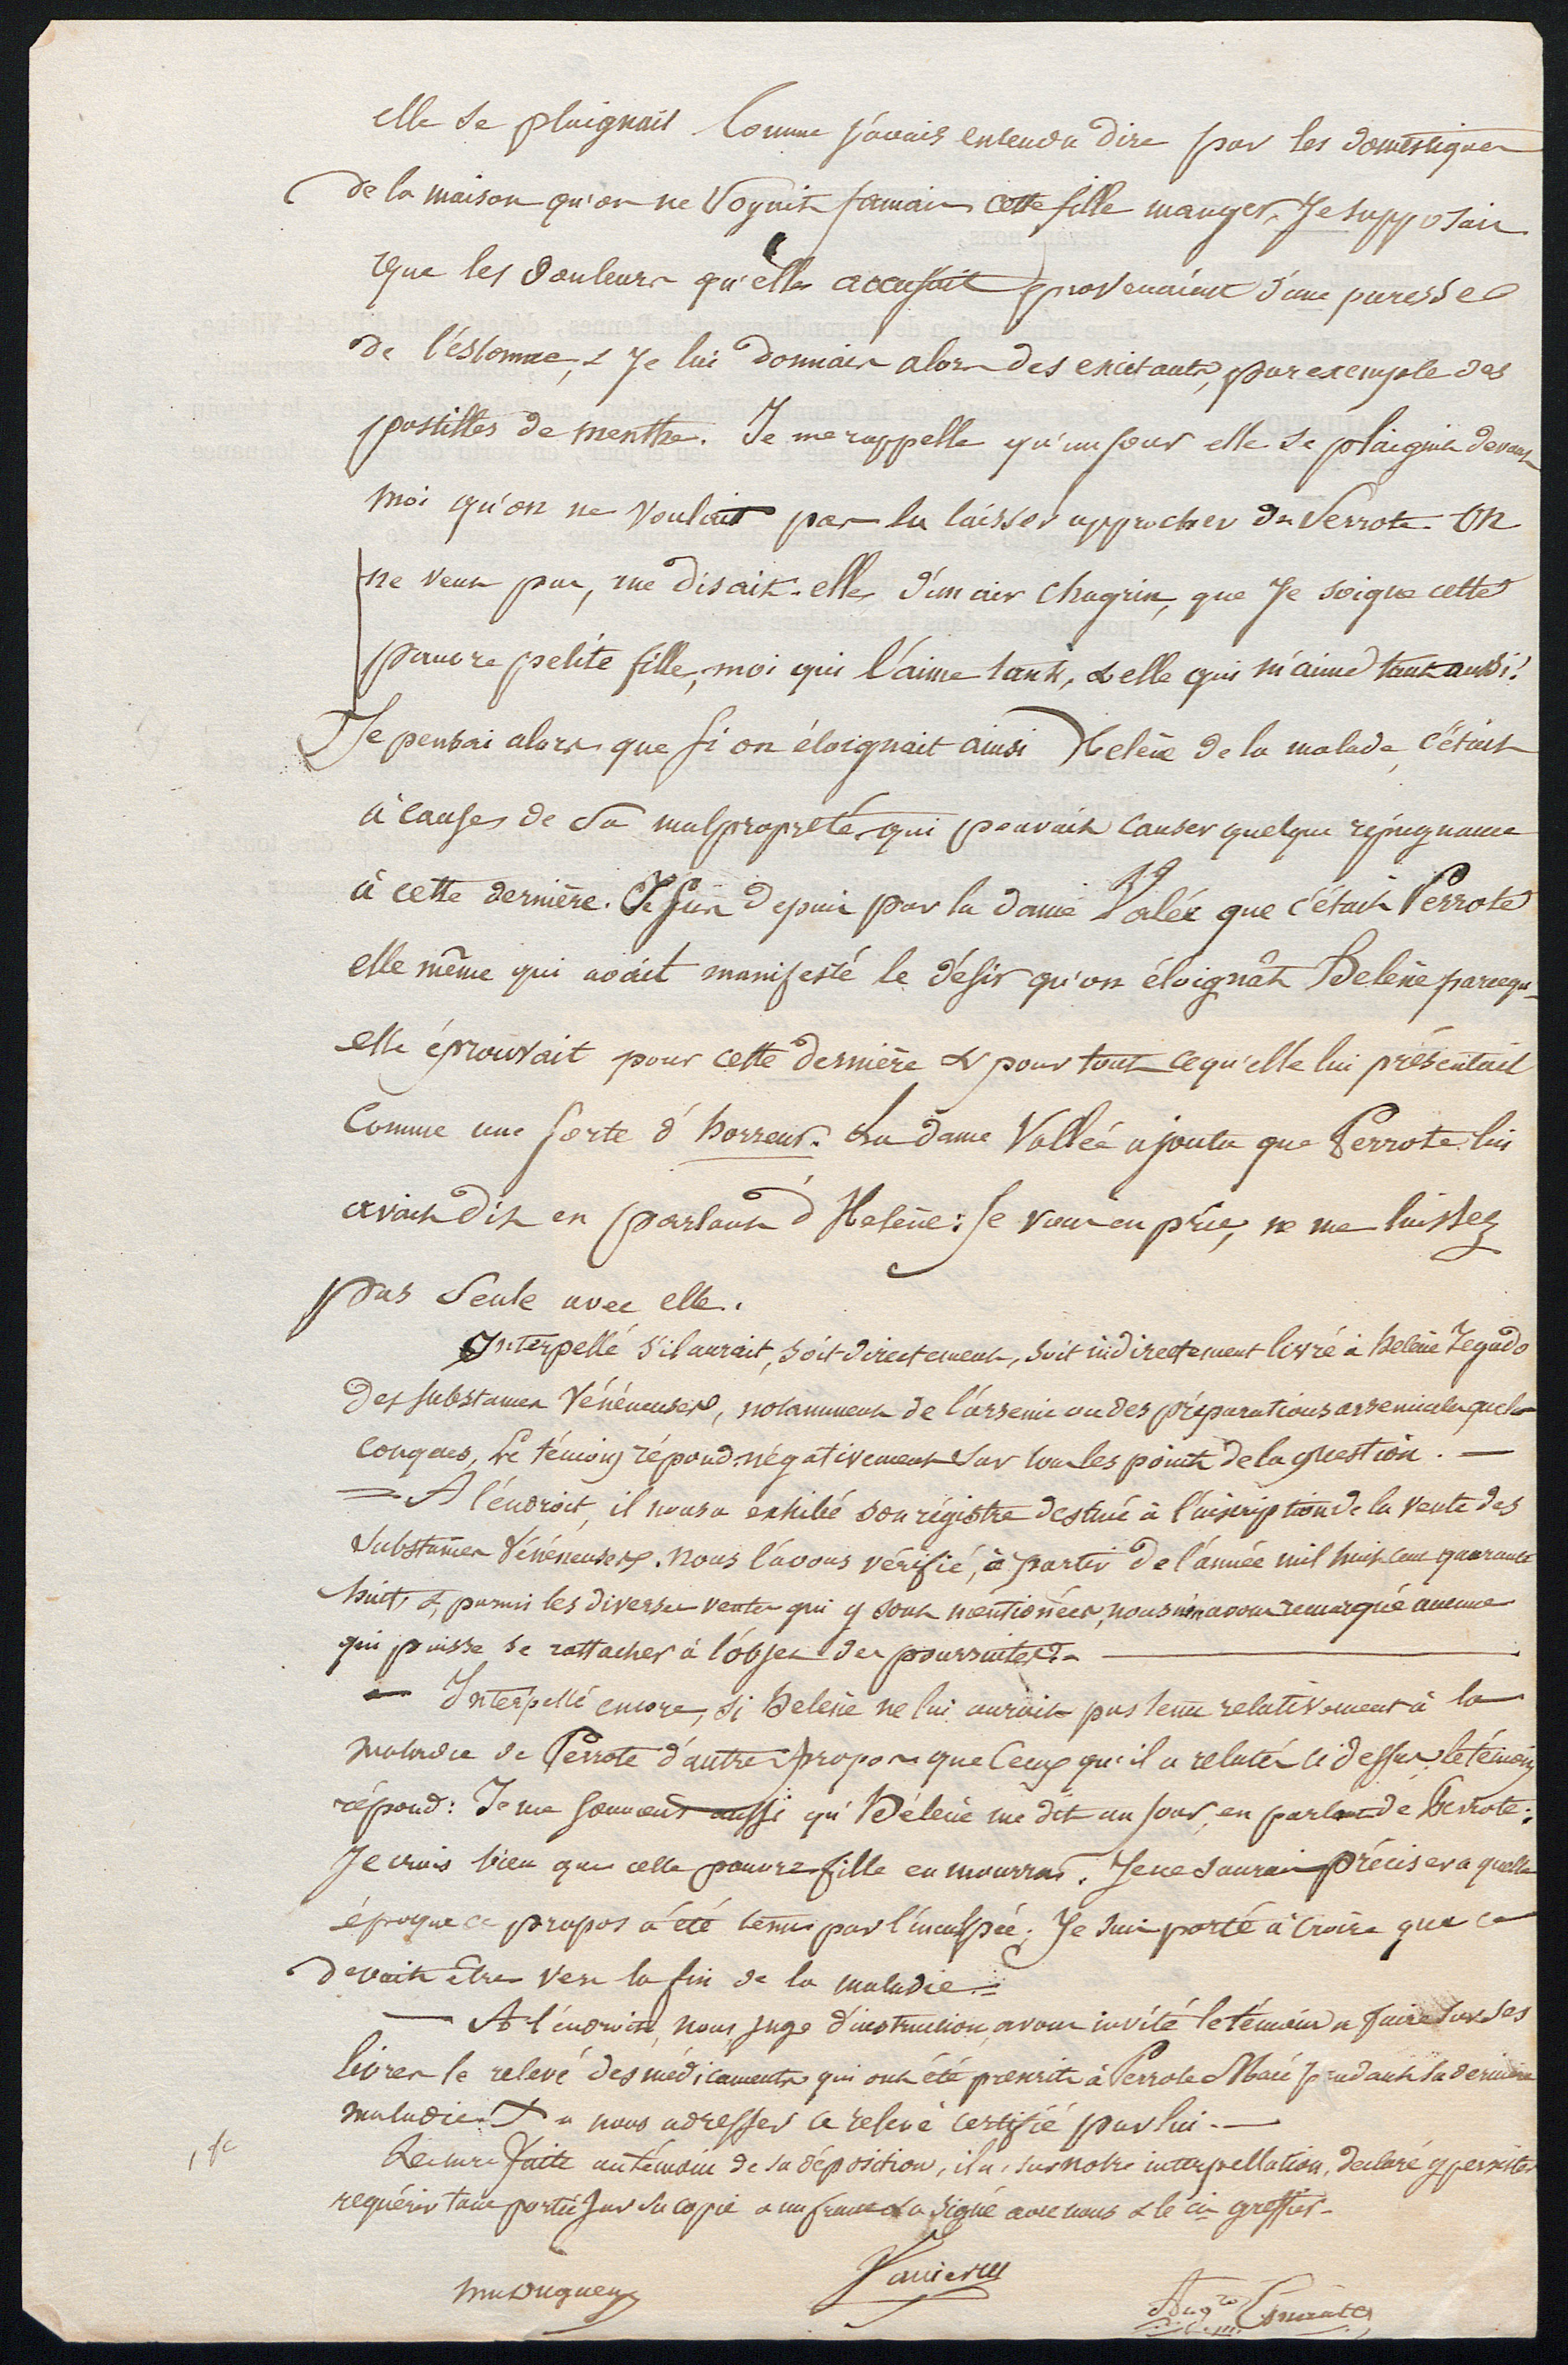 elle se plaignait. Comme j'avais entendu dire par les domestiques
de la maison qu'on ne voyait jamais cette fille manger, Je supposais
que les douleurs qu'elle accusait provenaient d'une paresse
de l'estomac, & Je lui donnais alors des excitants, par exemple des
pastilles de menthe. Je me rappelle qu'un jour elle se plaignit devant
moi qu'on ne voulait pas la laisser approcher de Perrote. On
ne veut pas, me disait-elle, d'un air chagrin, que Je soigne cette
pauvre petite fille, moi qui l'aime tant, & elle qui m'aime tant aussi!
Je pensai alors que si on éloignait ainsi Helène de la malade, c'était
à cause de sa malpropreté qui pouvait causer quelque répugnance
à cette dernière. Je sus depuis par la dame Valée que c'était Perrote
elle même qui avait manifesté le désir qu'on éloignât Helène parcequ'
elle éprouvait pour cette dernière & pour tout ce qu'elle lui présentait
Comme une sorte d'horreur. La dame Vallée ajouta que Perrote lui
avait dit en parlant d'Helène: Je vous en prie, ne me laissez
pas seule avec elle.
Interpellé s'il aurait, soit directement, soit indirectement livré à helène Jegado
des substances vénéneuses, notamment de l'arsenic ou des préparations arsenicales quel-
conques, Le témoin répond négativement sur tous les points de la question. —
= A l'endroit, il nous a exhibé son régistre destiné à l'inscription de la vente des
substances vénéneuses. Nous l'avons vérifié, à partir de l'année mil huit cent quarante
huit, &, parmi les diverses ventes qui y sont mentionées, nous n'en avons remarqué aucune
qui puisse se rattacher à l'objet des poursuites. —
— Interpellé encore, si helène ne lui aurait pas tenu relativement à la
maladie de Perrote d'autres propos que Ceux qu'il a relatés ci dessus, le témoin
répond: Je me souviens aussi qu'Hélène me dit un jour, en parlant de Perrote:
Je crois bien que cette pauvre fille en mourra. Je ne saurais préciser à quelle
époque ce propos a été tenu par l'inculpée; Je suis porté à croire que ce
devait être vers la fin de la maladie. =
— A l'endroit, nous, juge d'instruction, avons invité le témoin à faire sur ses
livres le relevé des médicaments qui ont été prescrits à Perrote Macé pendant sa dernière
maladie & à nous adresser ce relevé certifié par lui. —
1 fc
Lecture faite au témoin de sa déposition, il a, sur notre interpellation, déclaré y persister
requérir taxe portée sur sa copie à un franc & a signé avec nous & le cis greffier.